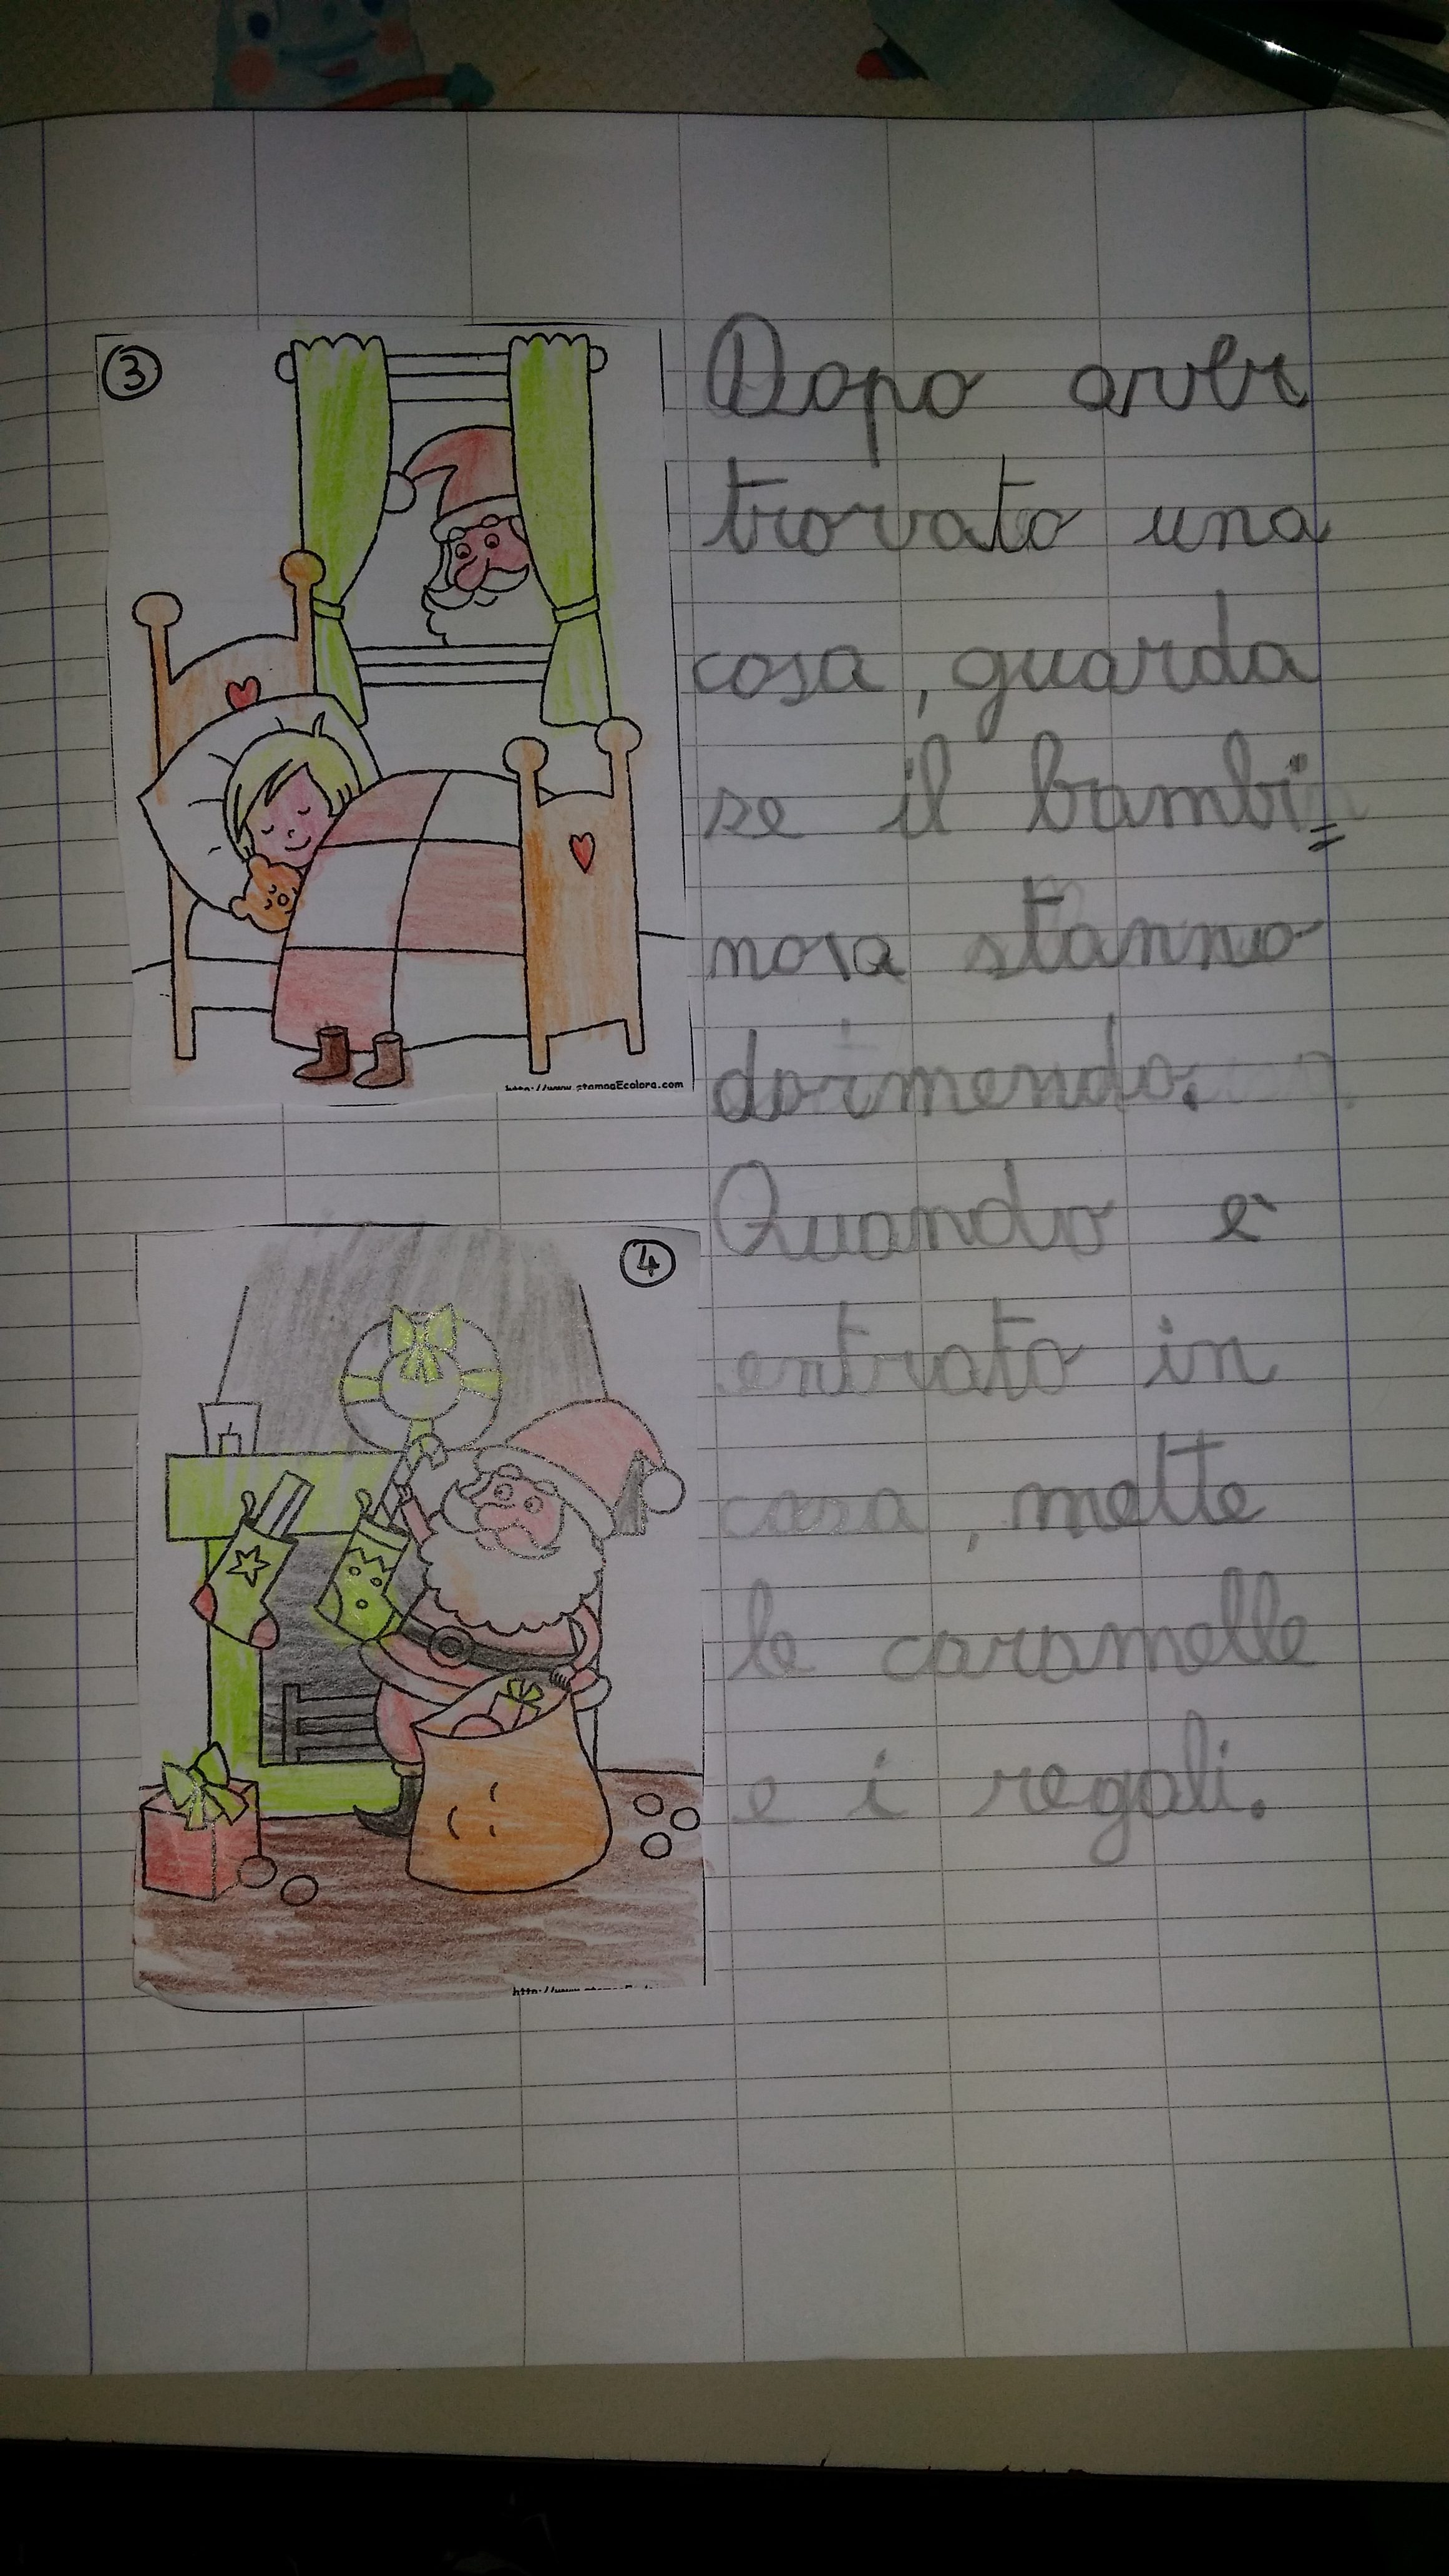 3
Dopo aver
trovato una
casa, guarda
se il bambi=
no\a stanno
dormendo.
http://www.stampaEcolora.com
4
Quando è
entrato in
casa, mette
le caramelle
e i regali.
http://www.